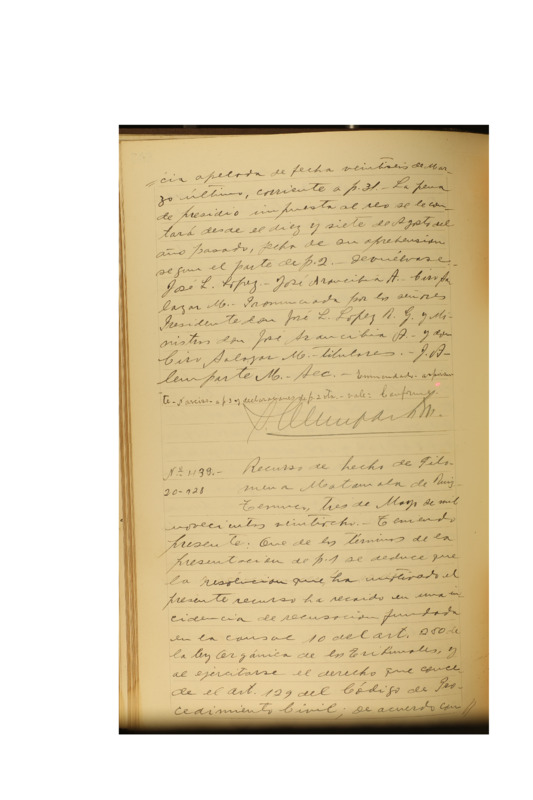 cia apelada de fecha veintiseis de Mar-
zo último, corriente a p. 31 - La pena
de presidio impuesta al reo se le con-
tará desde el diez y siete de Agosto del
año pasado, fecha de su aprehensión
segun el parte de p. 2. - Devuélvase.
José L. Lopez. - José Arancibia A. - Ciro Sa-
lazar M. - Pronunciada por los señores
Presidente don José L. Lopez A. G. y Mi-
nistros don José Arancibia A. - y don
Ciro Salazar M. - titulares. - J. A-
lemparte M. - Sec. -
te - vale - Conforme.
Nº 1139. - Recurso de hecho de Filo-
20-928 mena Matamala de Ruiz -
Temuco, tres de Mayo de mil
novecientos veintiocho. - Teniendo
presente: Que de los términos de la
presentación de p. 1 se deduce que
la resolución que ha motivado el
presente recurso ha recaido en una in-
cidencia de recusación fundada
en la causal 10 del art. 250 de
la ley Orgánica de los Tribunales, y
al ejercitarse el derecho que conce-
de el art. 129 del Código de Pro-
cedimiento Civil; De acuerdo con